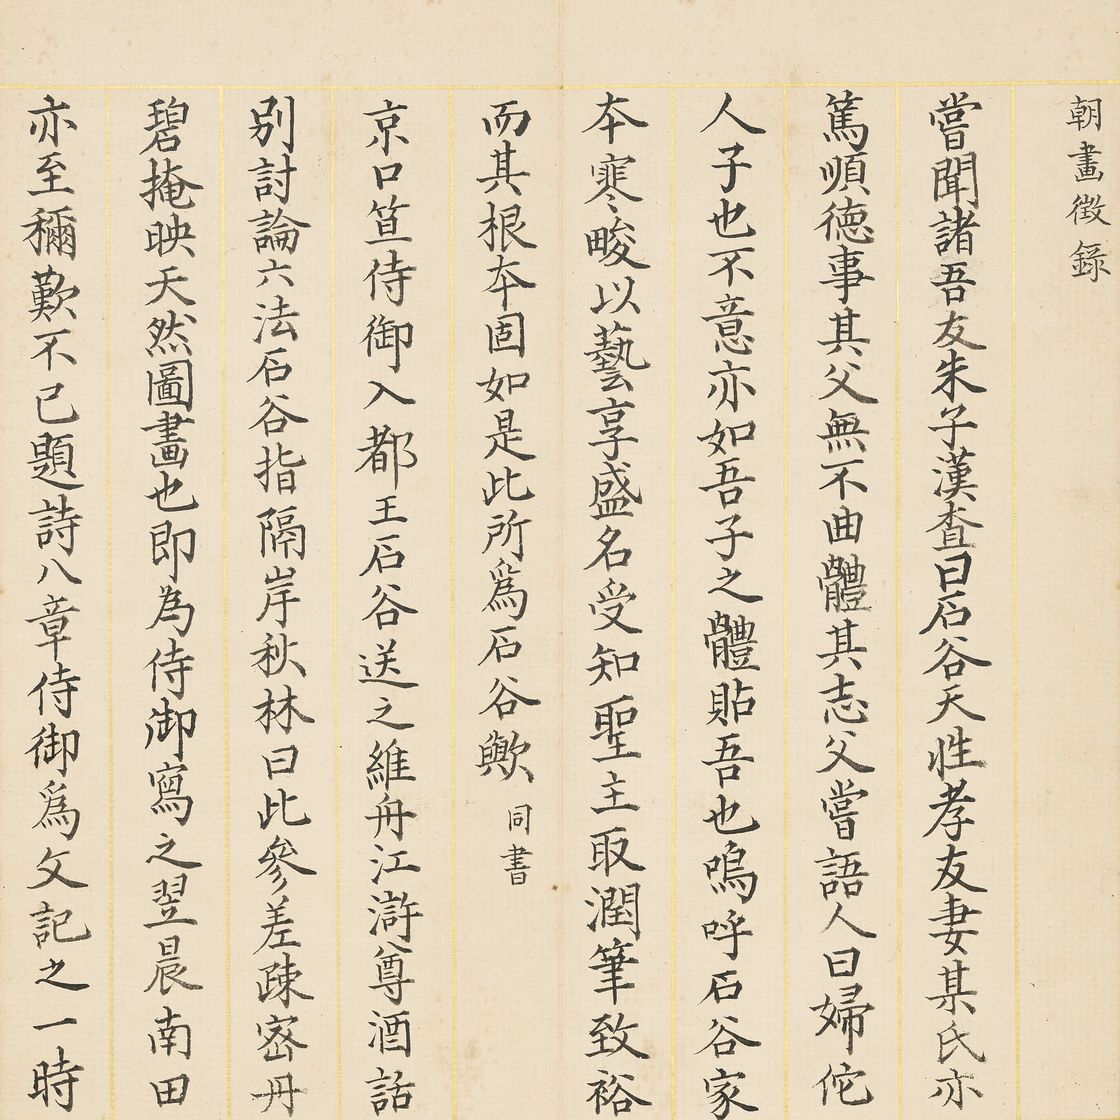 朝畫徵錄
嘗聞諸吾友朱子漢査曰石谷天性孝友妻某氏亦
篤順德事其父無不曲體其志父嘗語人曰婦佗
人子也不意亦如吾子之體貼吾也嗚呼石谷家
本寒畯以藝享盛名受知聖主取潤筆致裕
而其根本固如是此所爲石谷歟 同書
京口笪侍御入都王石谷送之維舟江滸尊酒話
別討論六法石谷指隔岸秋林曰此參差疎密丹
碧掩映天然圖畫也即為侍御寫之翌晨南田
亦至稱歎不已題詩八章侍御爲文記之一時